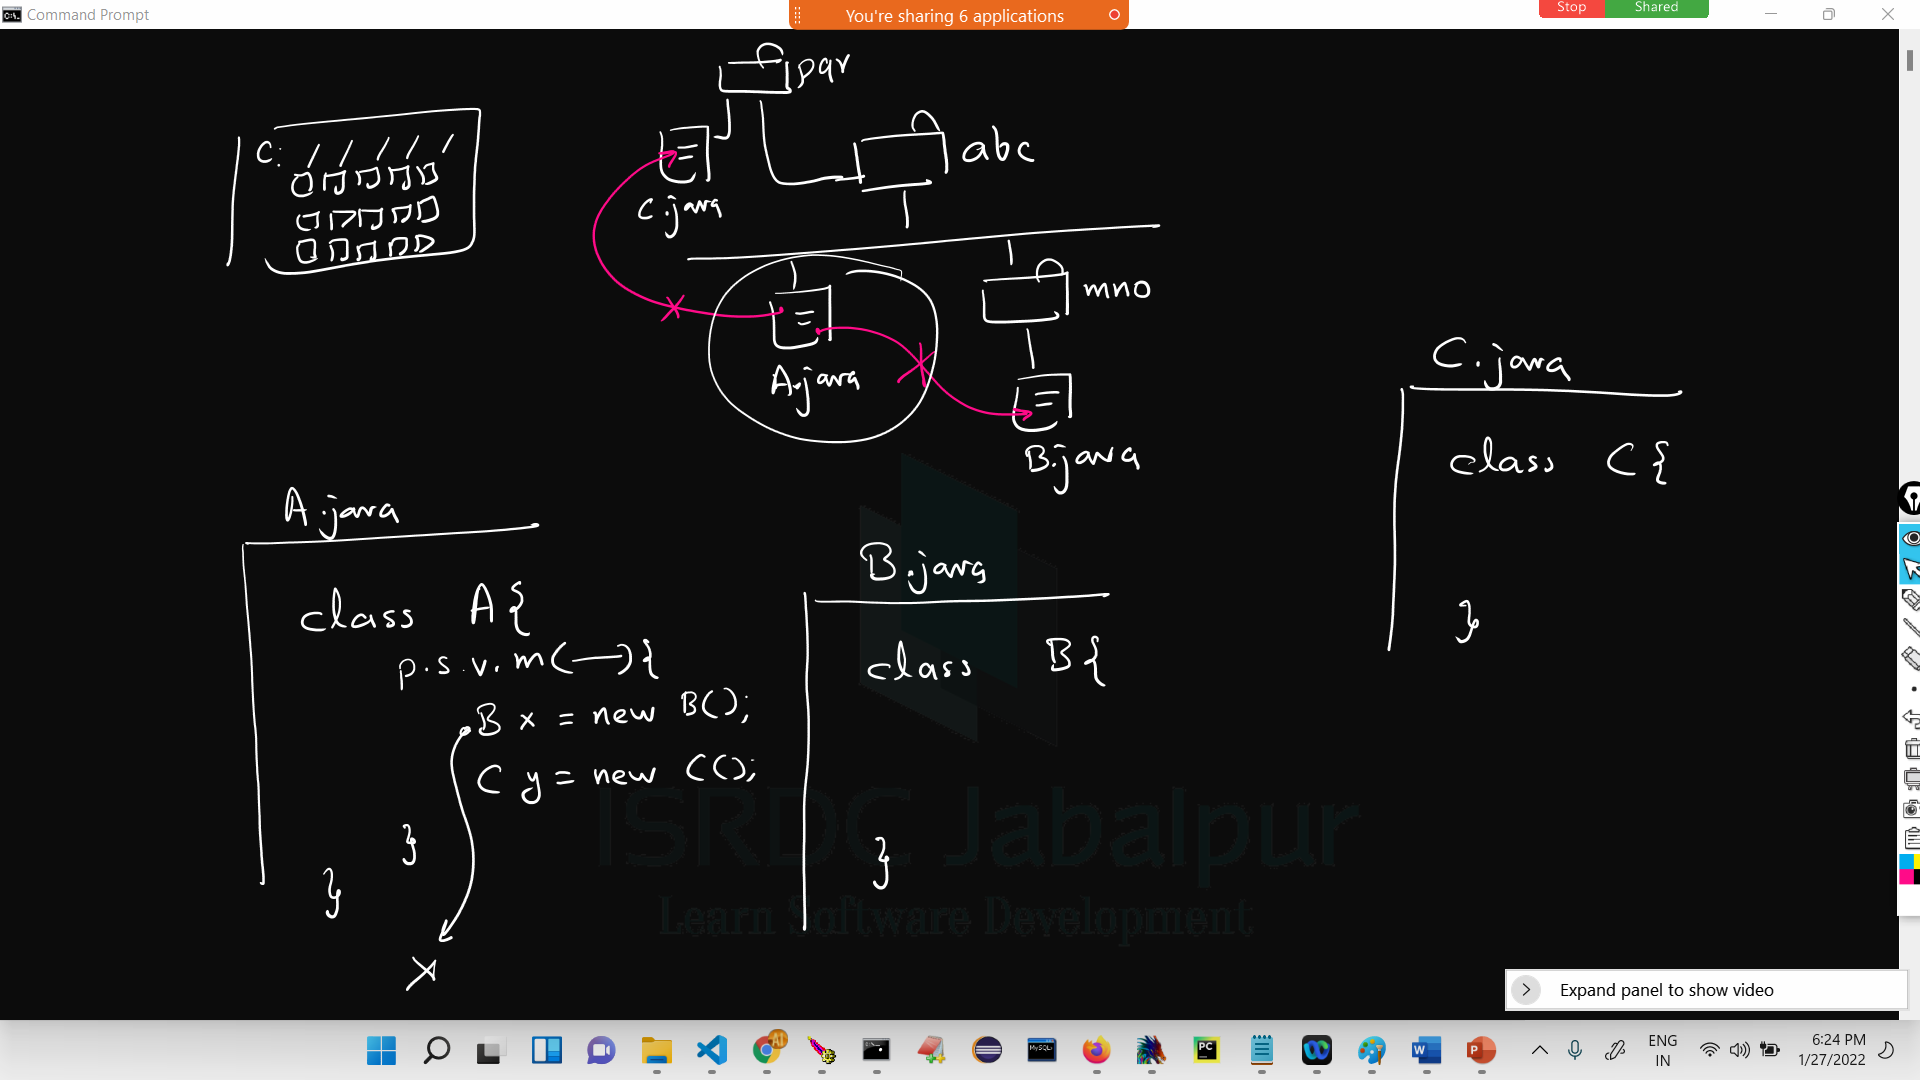 Command Prompt
You're sharing 6 applications
Stop
Shared
pqr
C:
abc
C.java
mno
A.java
B.java
C.java
class C{
}
A.java
class A{
p.s.v.m(—){
B x = new B();
C y = new C();
}
}
B.java
class B{
}
ISRDC Jabalpur
Learn Software Development
Expand panel to show video
AI
MySQL
PC
W
P
ENG
IN
6:24 PM
1/27/2022